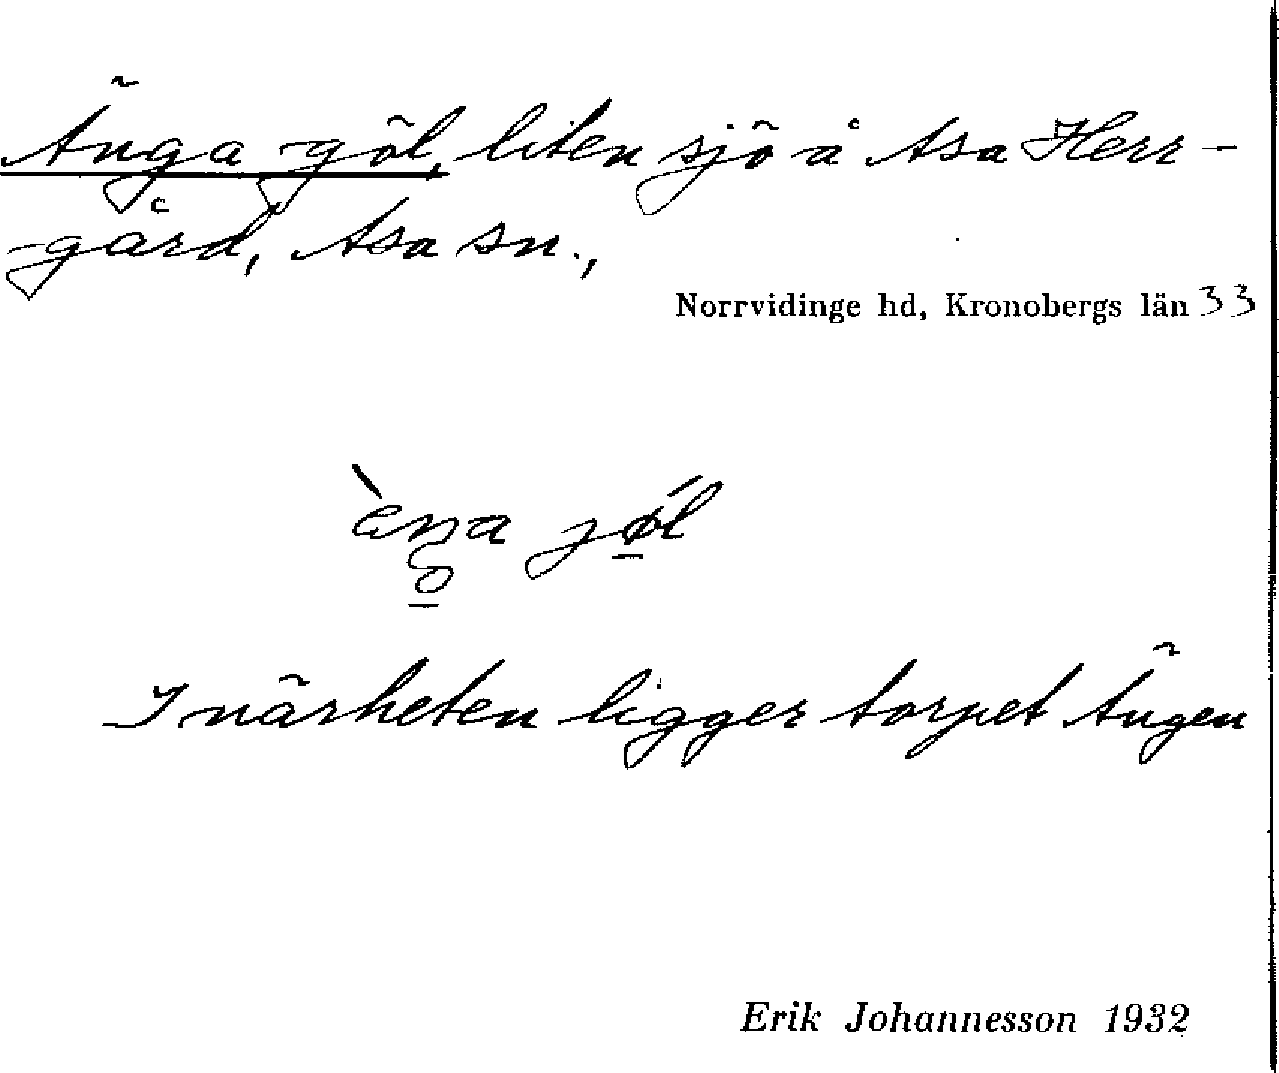 Änga-göl, liten sjö å Asa Herr-
-gård, Asa sn.,
Norrvidinge hd, Kronobergs län 33
I närheten ligger torpet Ängen
Erik Johannesson 1932